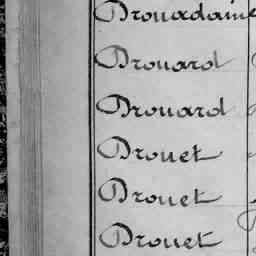 Drouadaine
Drouard
Drouard
Drouet
Drouet
Drouet